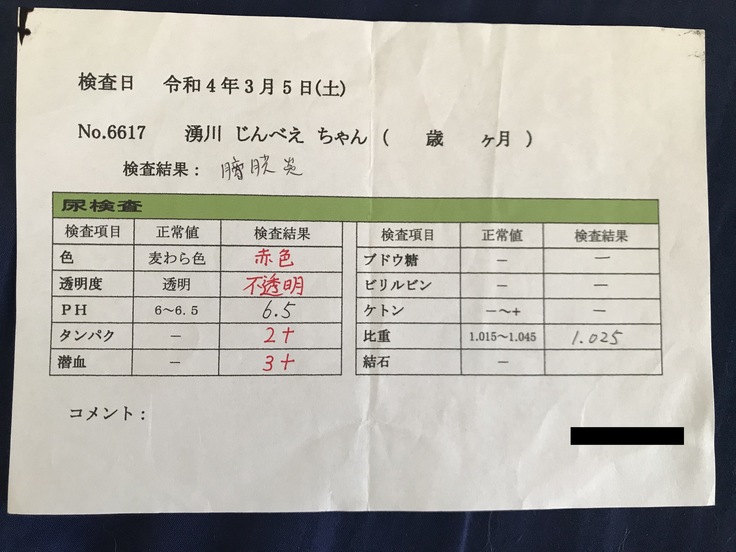 検査日 令和4年3月5日(土)
No.6617 湧川 じんべえ ちゃん ( 歳 ヶ月 )
検査結果： 膀胱炎
尿検査
検査項目 正常値 検査結果 検査項目 正常値 検査結果
色 麦わら色 赤色 ブドウ糖 － －
透明度 透明 不透明 ビリルビン － －
ＰＨ 6～6.5 6.5 ケトン －～+ －
タンパク － 2+ 比重 1.015～1.045 1.025
潜血 － 3+ 結石 －
コメント：